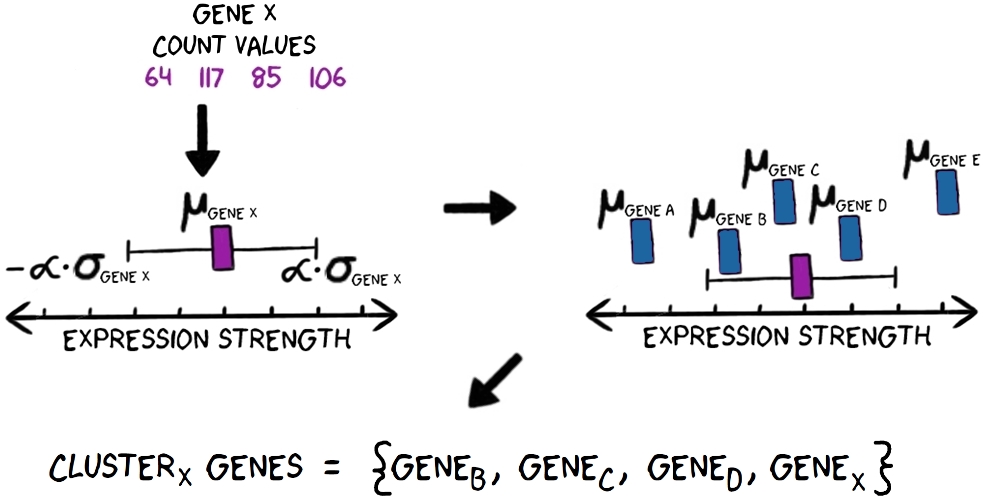 GENE X
COUNT VALUES
64 117 85 106
μGENE X
-α·σGENE X
α·σGENE X
EXPRESSION STRENGTH
μGENE A
μGENE B
μGENE C
μGENE D
μGENE E
EXPRESSION STRENGTH
CLUSTERX GENES = {GENEB, GENEC, GENED, GENEX}